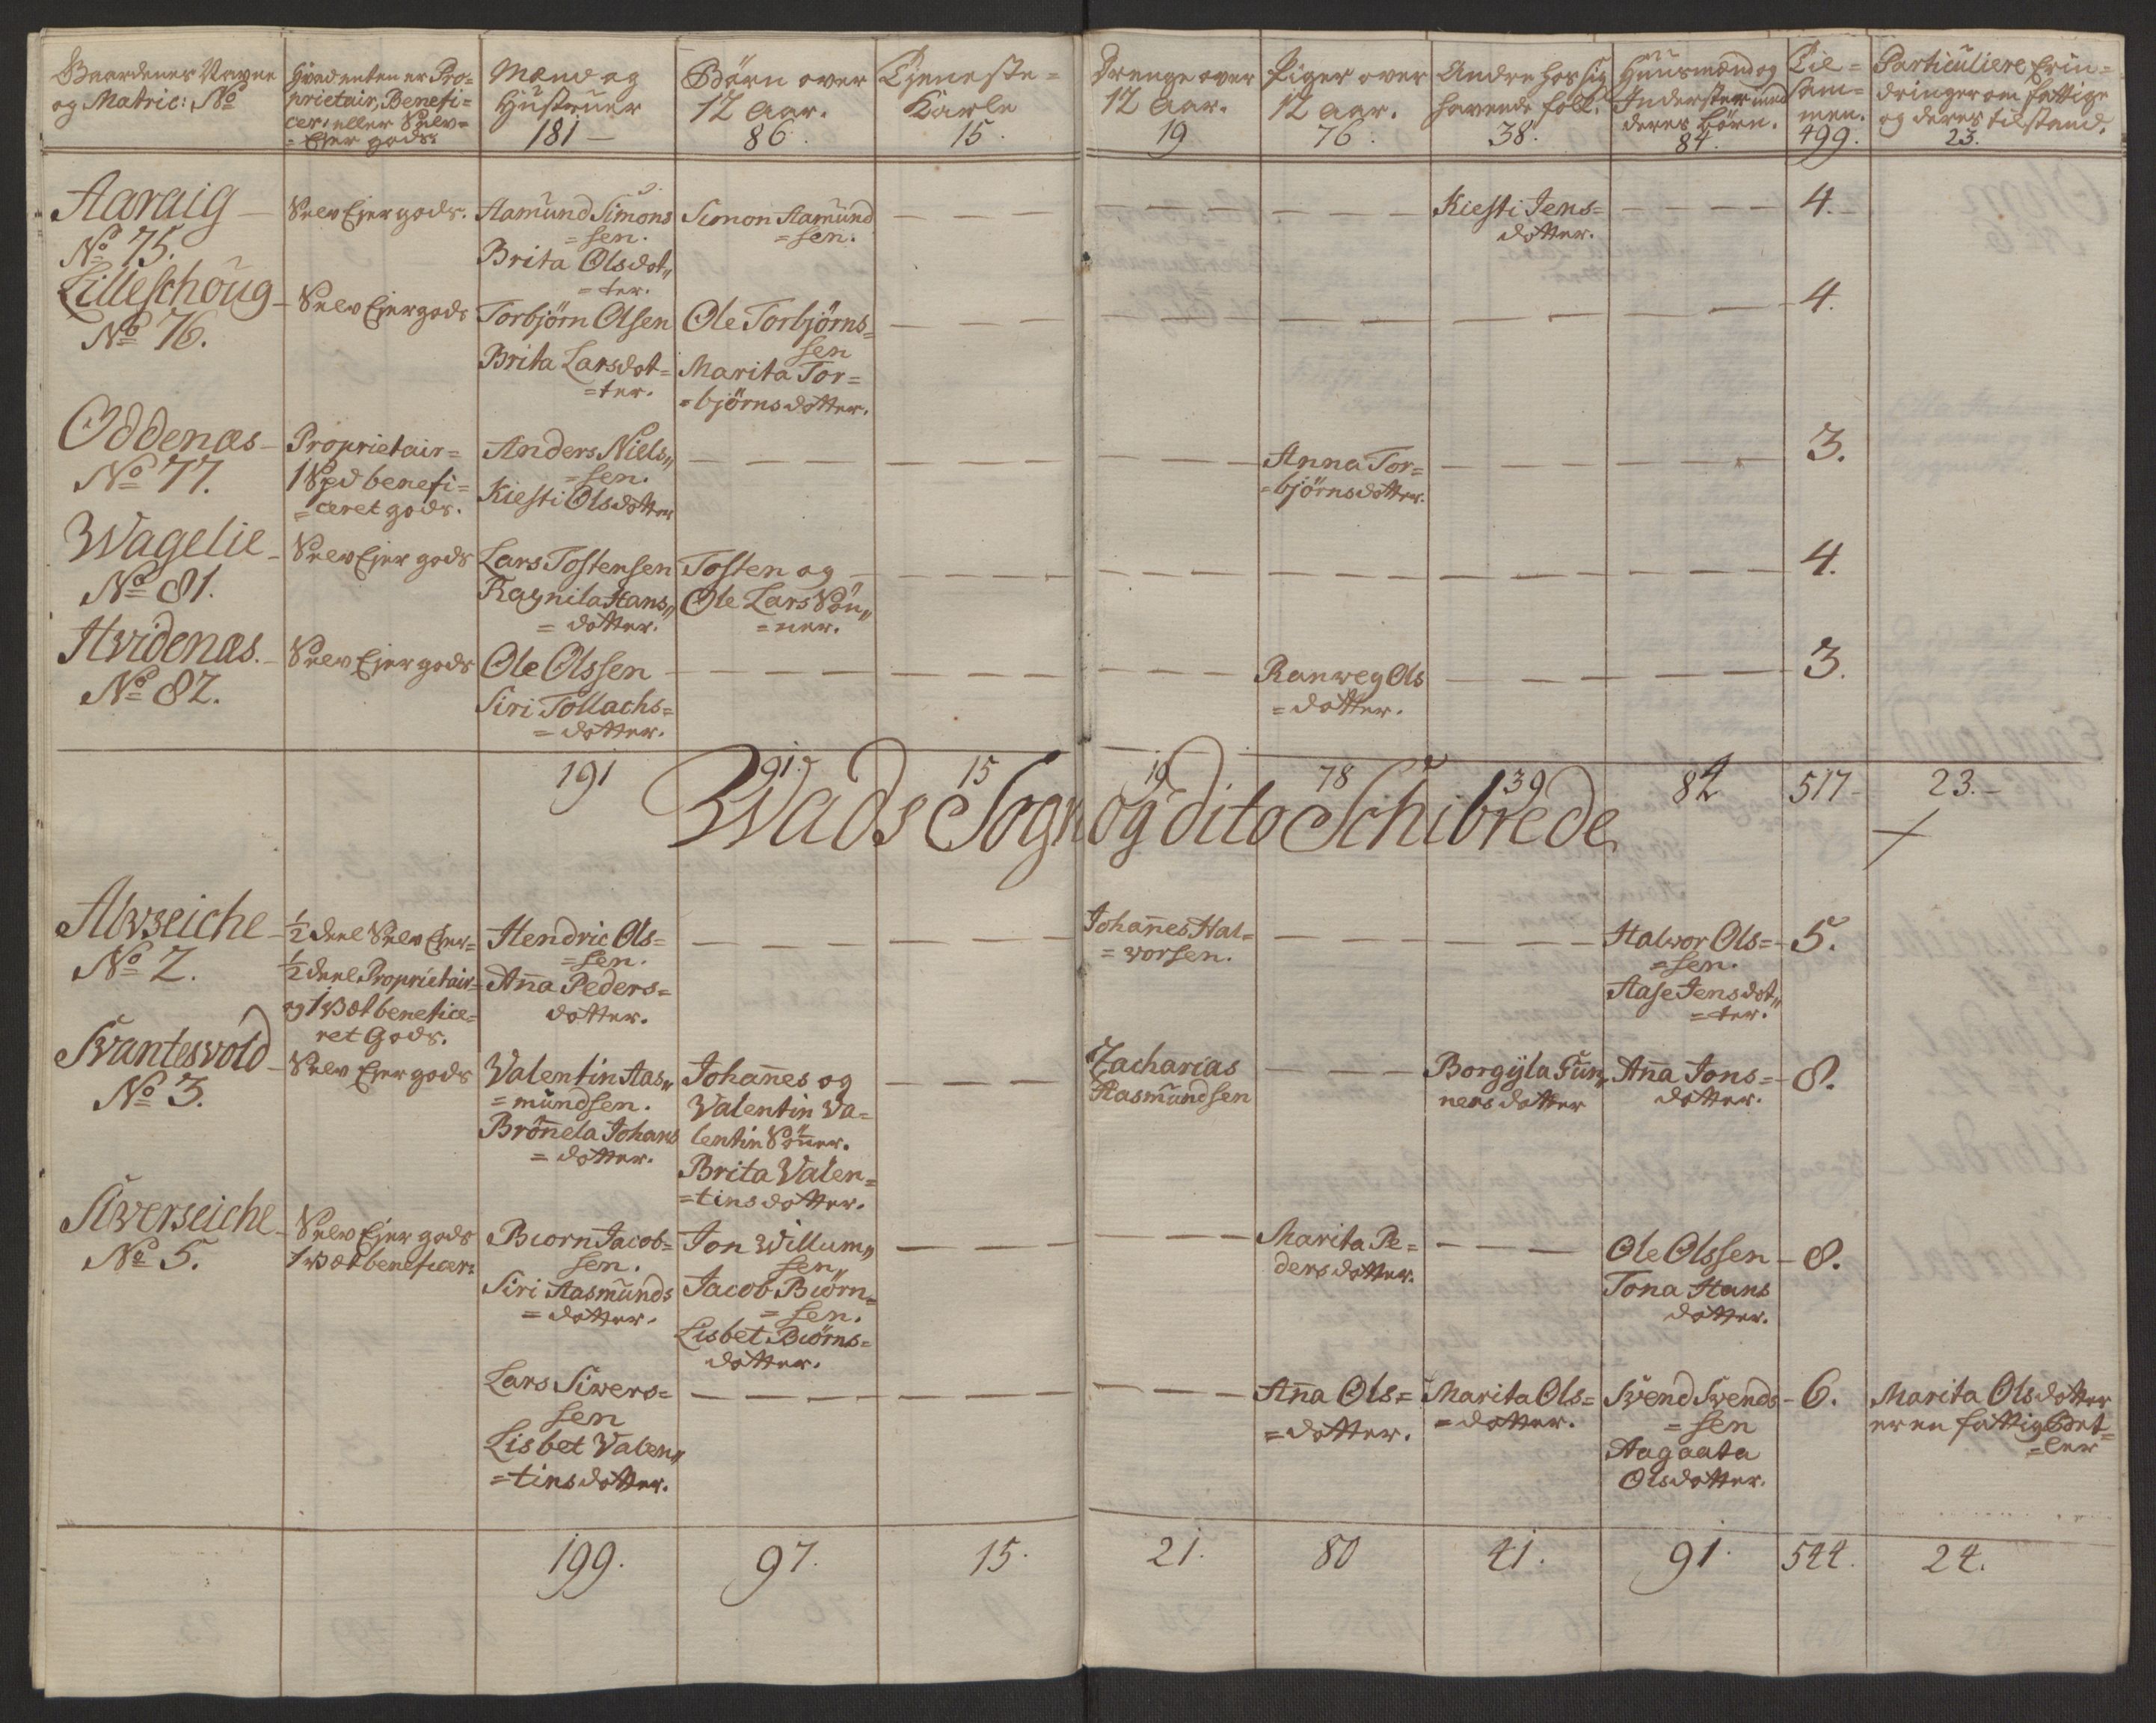 Gaardenes Navne
og Matric: No
Hvad enten er Pro=
prietair, Benefi=
cer: eller Selv=
=Ejer gods.
Mænd og
Hustruer
181 —
Börn over
12 Aar.
86.
Tjeneste=
Karle
15.
Drenge over
12 Aar.
19
Piger over
12 Aar.
76.
Andre hos sig
havende folk.
38.
Huusmænd og
Inderster med
deres börn.
84.
Til=
sam=
men.
499.
Particuliere Erin=
dringer om fattige
og deres tilstand.
23.
Aaraig —
No 75.
Selv Ejer gods.
Aamund Simons
=sen.
Brita Olsdot„
=ter.
Simon Aamund
=sen.
Kiesti Jens=
dotter.
4.
Lilleschoug —
No 76.
Selv Ejer gods
Torbjörn Olsen
Brita Larsdot=
=ter.
Ole Torbjörns=
sen
Marita Tor=
=björnsdotter.
4.
Oddenæs —
No 77.
Proprietair=
1 Spd benefi=
=ceret gods.
Anders Niels„
=sen.
Kiesti Olsdotter
Anna Tor=
=björnsdotter.
3.
Wagelie —
No 81.
Selv Ejer gods
Lars Tostensen
Ragnila Hans„
= dotter.
Tosten og
Ole Lars Sön„
=ner.
4.
Hvidenæs. —
No 82.
Selv Ejer gods
Ole Olssen
Siri Tollachs=
= dotter.
Ranweg Ols
= dotter.
3.
191
91.
15
19
78
39
84
517 —
23. —
Wads Sogn og dito Schibrede
Alwseiche —
No 2.
½ deel Selv Ejer=
½ deel Proprietair=
og 1 Wet benefice=
ret Gods.
Hendric Ols=
=sen.
Anna Peders=
dotter.
Johannes Hal=
= vorsen.
Halvor Ols=
=sen.
Aase Jensdot„
=ter.
5.
Svantesvold —
No 3.
Selv Ejer gods
Valentin Aas„
=mundsen.
Brönnela Johans
= dotter.
Johannes og
Valentin Va=
lentin Sönner.
Brita Valen=
=tinsdotter.
Zacharias
Aasmundsen
Borgyla Fun„
nersdotter
Anna Jons=
dotter.
8.
Siverseiche —
No 5.
Selv Ejer gods
1 Wet beneficer:
Biorn Jacob=
sen.
Siri Aasmunds
= dotter.
Jon Willum„
sen„
Jacob Biörn=
=sen.
Lisbet Biörns=
dotter.
Marita Pe=
dersdotter.
Ole Olssen
Tona Hans
dotter.
8.
Lars Sivers=
sen
Lisbet Valen„
=tinsdotter.
Anna Ols=
=dotter.
Marita Ols=
=dotter.
Svend Svends
=sen
Aagaata
Olsdotter.
6.
Marita Olsdotter
er en fattig Bet=
=ler
199.
97.
15.
21.
80
41.
91.
544.
24.